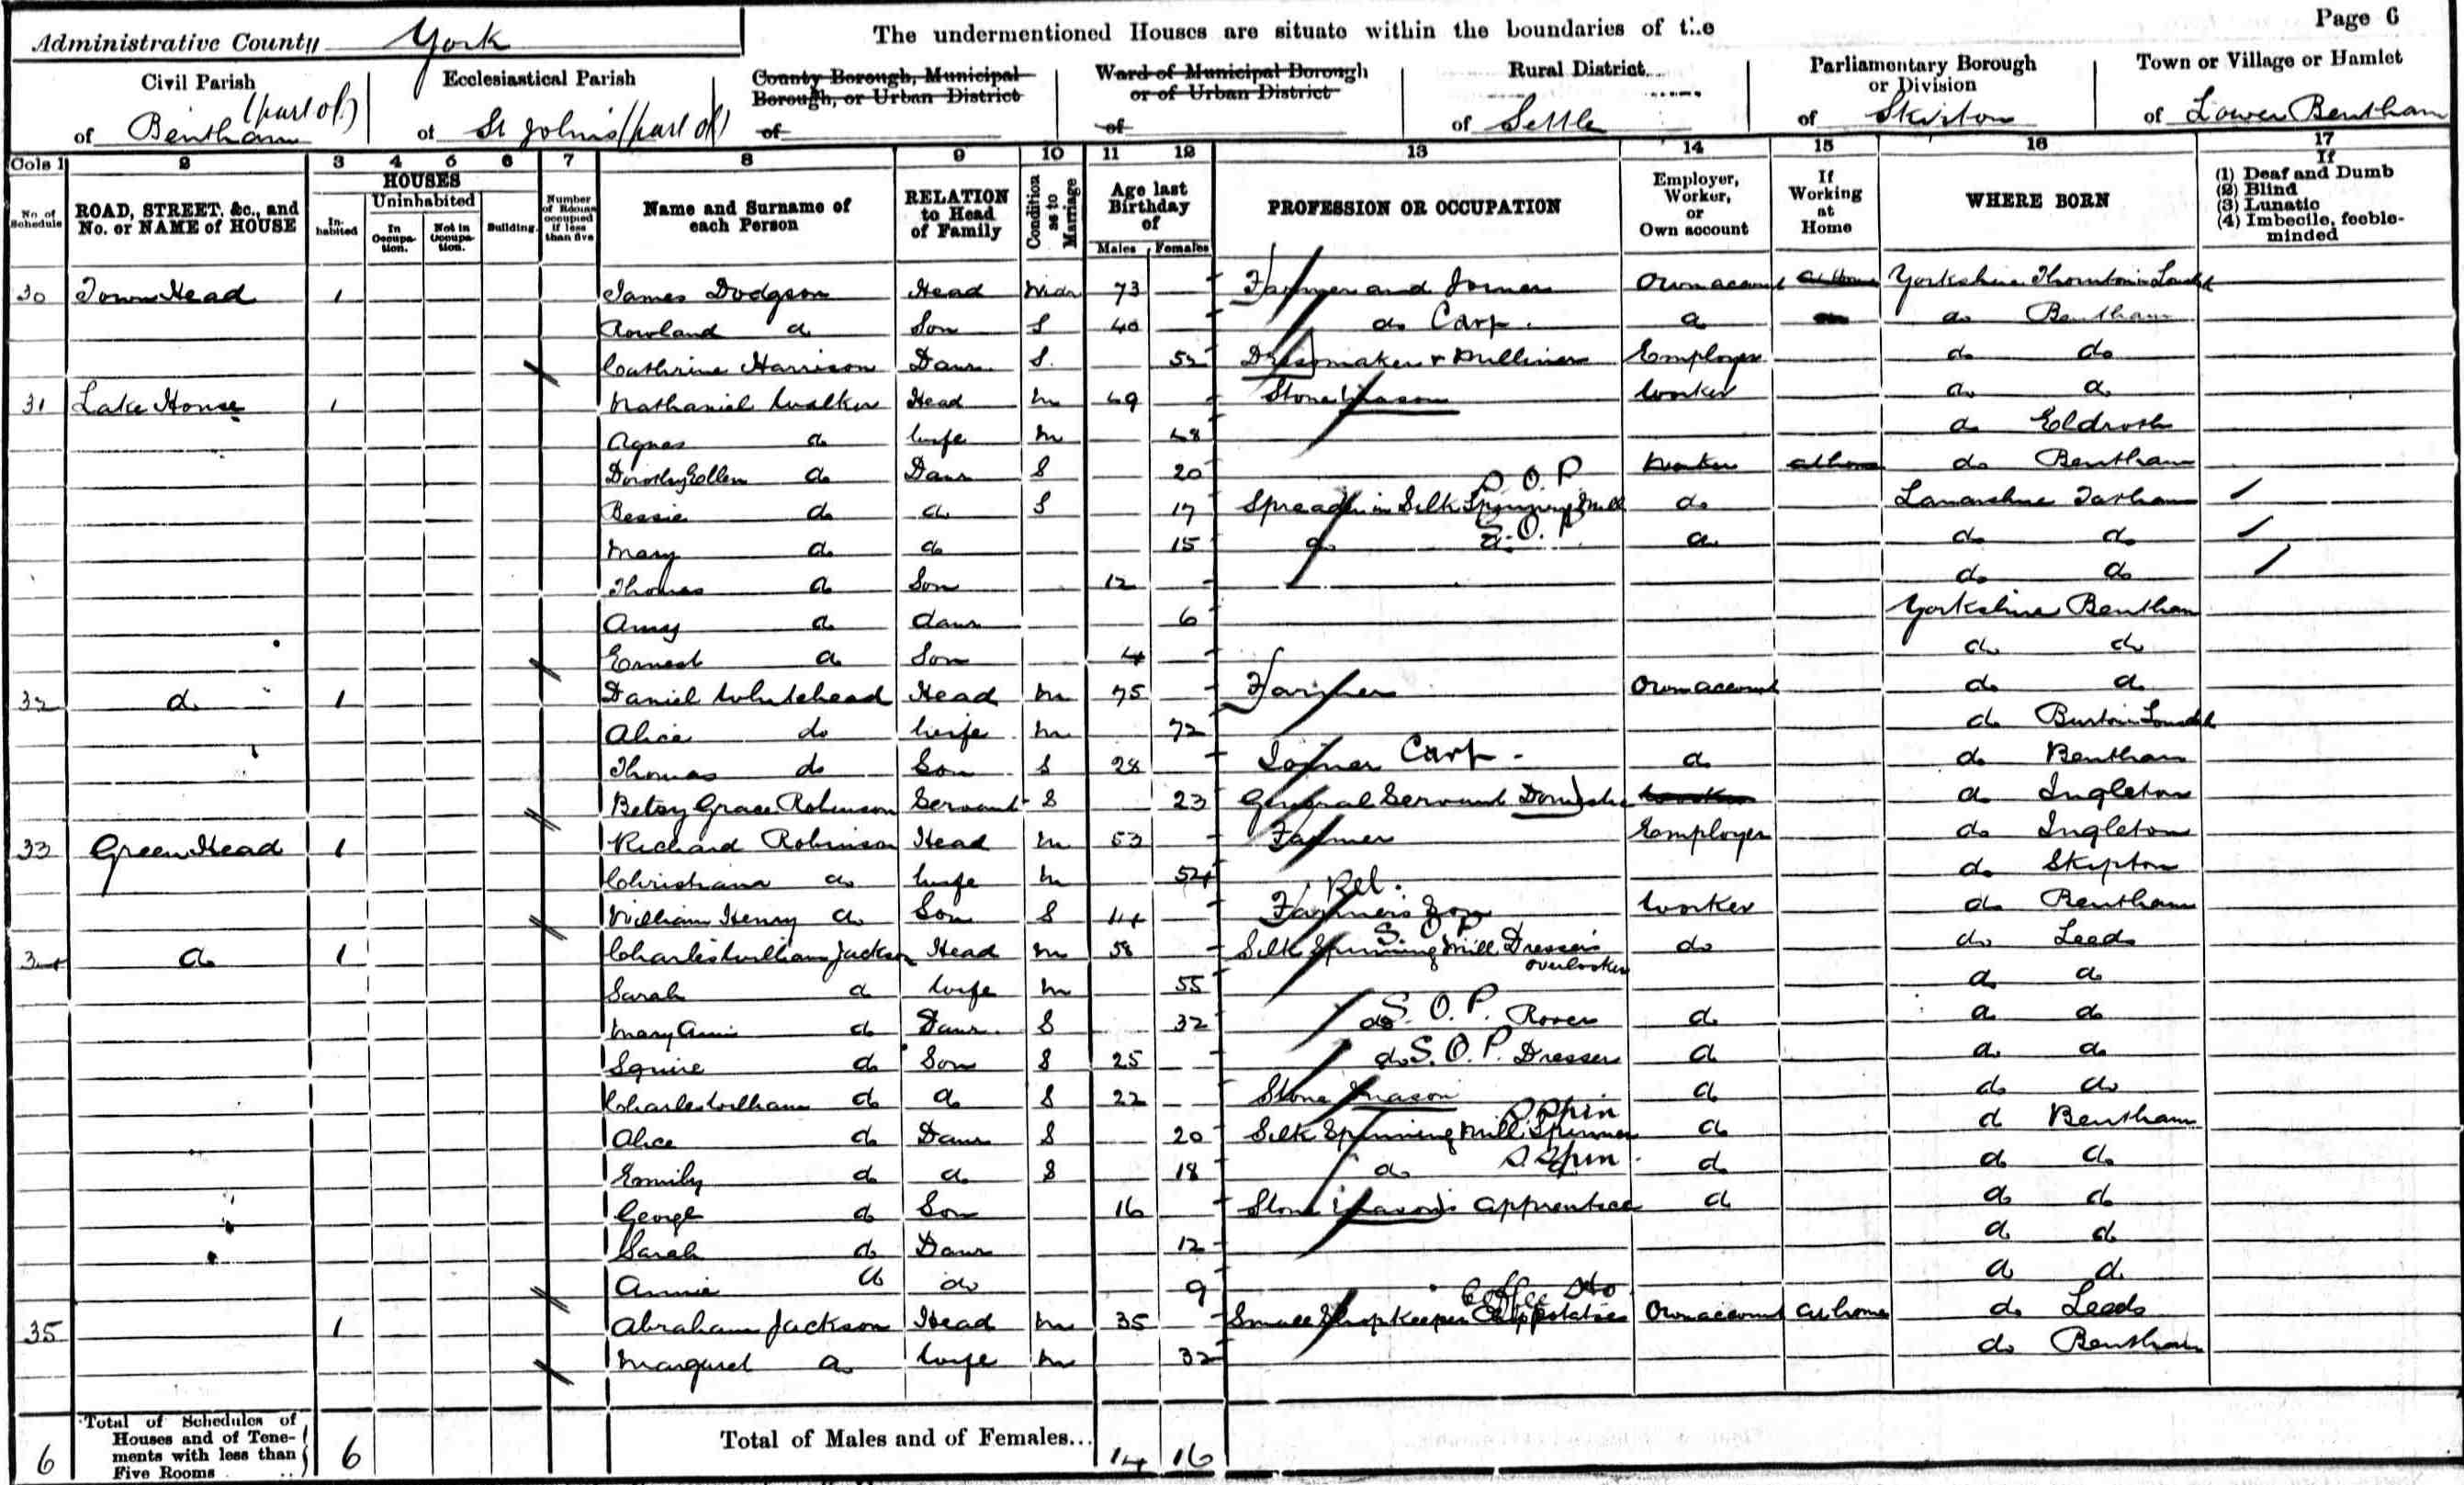 Page 6
Administrative County York
The undermentioned Houses are situate within the boundaries of the
Civil Parish
of Bentham (part of)
Ecclesiastical Parish
of St Johns (part of)
County Borough, Municipal Borough, or Urban District
of
Ward of Municipal Borough or of Urban District
of
Rural District
of Settle
Parliamentary Borough or Division
of Skipton
Town or Village or Hamlet
of Lower Bentham
Cols 1 2 3 4 5 6 7 8 9 10 11 12 13 14 15 16 17
No. of Schedule
ROAD, STREET, &c., and No. or NAME of HOUSE
HOUSES
In-habited
Uninhabited
In Occupa-tion.
Not in Occupa-tion.
Building.
Number of Rooms occupied if less than five
Name and Surname of each Person
RELATION to Head of Family
Condition as to Marriage
Age last Birthday of
Males Females
PROFESSION OR OCCUPATION
Employer, Worker, or Own account
If Working at Home
WHERE BORN
If
(1) Deaf and Dumb
(2) Blind
(3) Lunatic
(4) Imbecile, feeble-minded
30 Town Head 1 James Dodgson Head Widr 73 Farmer and Joiner Own account at home Yorkshire Thornton in Lonsdale
Rowland do Son S 40 do Carp. do do Bentham
Cathrine Harrison Daur. S. 52 Dressmaker & Milliner Employer do do
31 Lake House 1 Nathaniel Walker Head M 49 Stone Mason Worker do do
Agnes do Wife M 48 do Eldroth
Dorothy Ellen do Daur S 20 Worker at home do Bentham
Bessie do do S 17 Spreader in Silk Spinning Mill S.O.P do Lancashire Tatham
Mary do do 15 do do S.O.P do do do
Thomas do Son 12 do do
Amy do daur 6 Yorkshire Bentham
Ernest do Son 4 do do
32 do 1 Daniel Whitehead Head M 75 Farmer Own account do do
Alice do Wife M 72 do Burton in Lonsdale
Thomas do Son S 28 Joiner Carp. do do Bentham
Betsy Grace Robinson Servant S 23 General Servant Domestic Worker do Ingleton
33 Green Head 1 Richard Robinson Head M 53 Farmer Employer do Ingleton
Christiana do Wife M 54 do Skipton
William Henry do Son S 14 Farmer's Son Rel. Worker do Bentham
34 do 1 Charles William Jackson Head M 58 Silk Spinning Mill Dresser's overlooker S.O.P do do Leeds
Sarah do Wife M 55 do do
Mary Annie do Daur. S 32 do S.O.P. Rover do do do
Squire do Son S 25 do S.O.P. Dresser do do do
Charles William do do S 22 Stone Mason do do do
Alice do Daur S 20 Silk Spinning Mill Spinner S Spin do do Bentham
Emily do do S 18 do S. Spin. do do do
George do Son 16 Stone Mason's apprentice do do do
Sarah do Daur 12 do do
Annie do do 9 do do
35 1 Abraham Jackson Head M 35 Small Shopkeeper Own account at home do Leeds
Margaret do Wife M 32 do Bentham
6 Total of Schedules of Houses and of Tenements with less than Five Rooms 6 Total of Males and of Females... 14 16